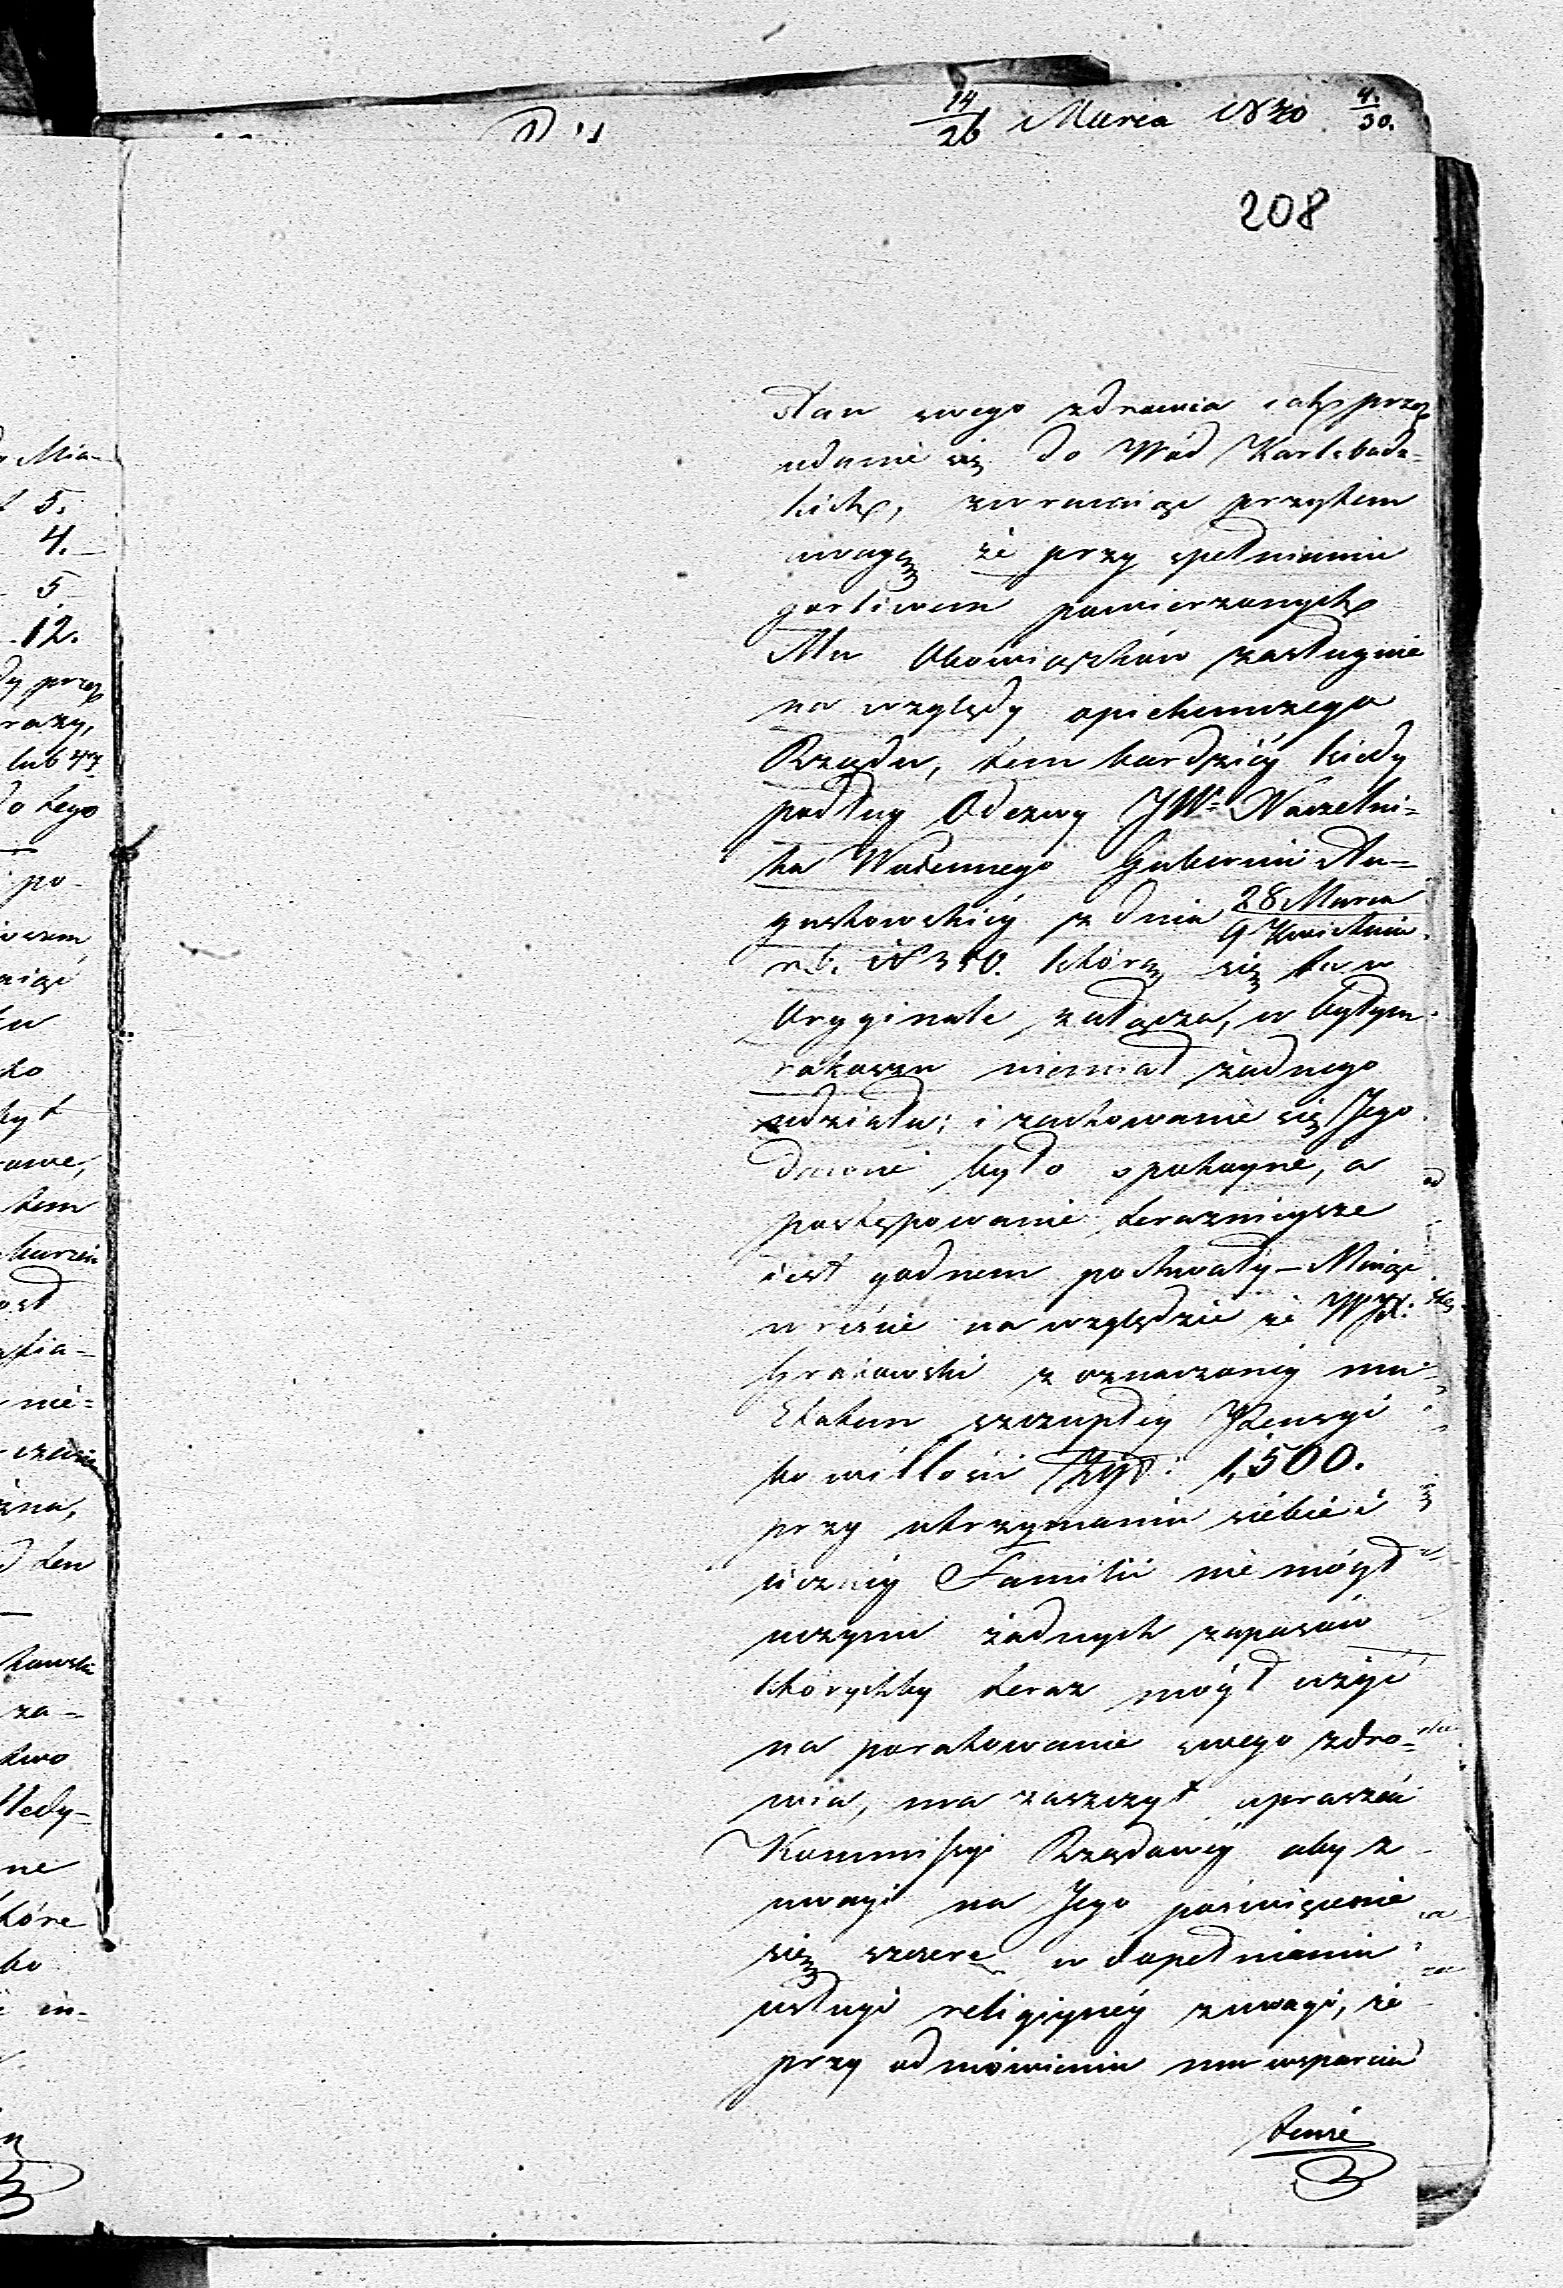 14/26 Marca 1840 4/30.
208
Stan swego zdrowia i aby przez
udanie się do Wód Karlsbadz-
kich, zwracaiąc przytem
uwagę że przy spełnianiu
gorliwem powierzonych
Mu Obowiązków zasługuie
na względy opiekuńczego
Rządu, tem bardziéy kiedy
podług Odezwy JWo Naczelni-
ka Woiennego Gubernii Au-
gustowskiéy z dnia 28 Marca / 9 Kwietnia
r. b. 1840. która się tu w
Oryginale załącza, w byłym
rokoszu niemiał żadnego
udziału; i zachowanie się Jego
dawne było spokoyne, a
postępowanie teraznieysze
iest godnem pochwały – Maiąc
wreście na względzie że WJX.
Grabowski z oznaczonéy mu
Etatem szczupłéy Pensyi
w ilości Złp: 1,500.
przy utrzymaniu siebie i
liczney Familii nie mógł
uczynić żadnych zapasów
którychby teraz mógł użyć
na poratowanie swego zdro-
wia, ma zaszczyt upraszać
Kommissyi Rządowéy aby z
uwagi na Jego poświęcenie
się szczere w dopełnianiu
usługi religiynéy z uwagi, że
przy odmówieniu mu wsparcia
tenże
o Mia-
5.
4.
5
12.
przez
razy,
lub
do tego
po-
ko
tem
ost
nie-
ten
za-
two
Medy-
ne
które
bo
in-